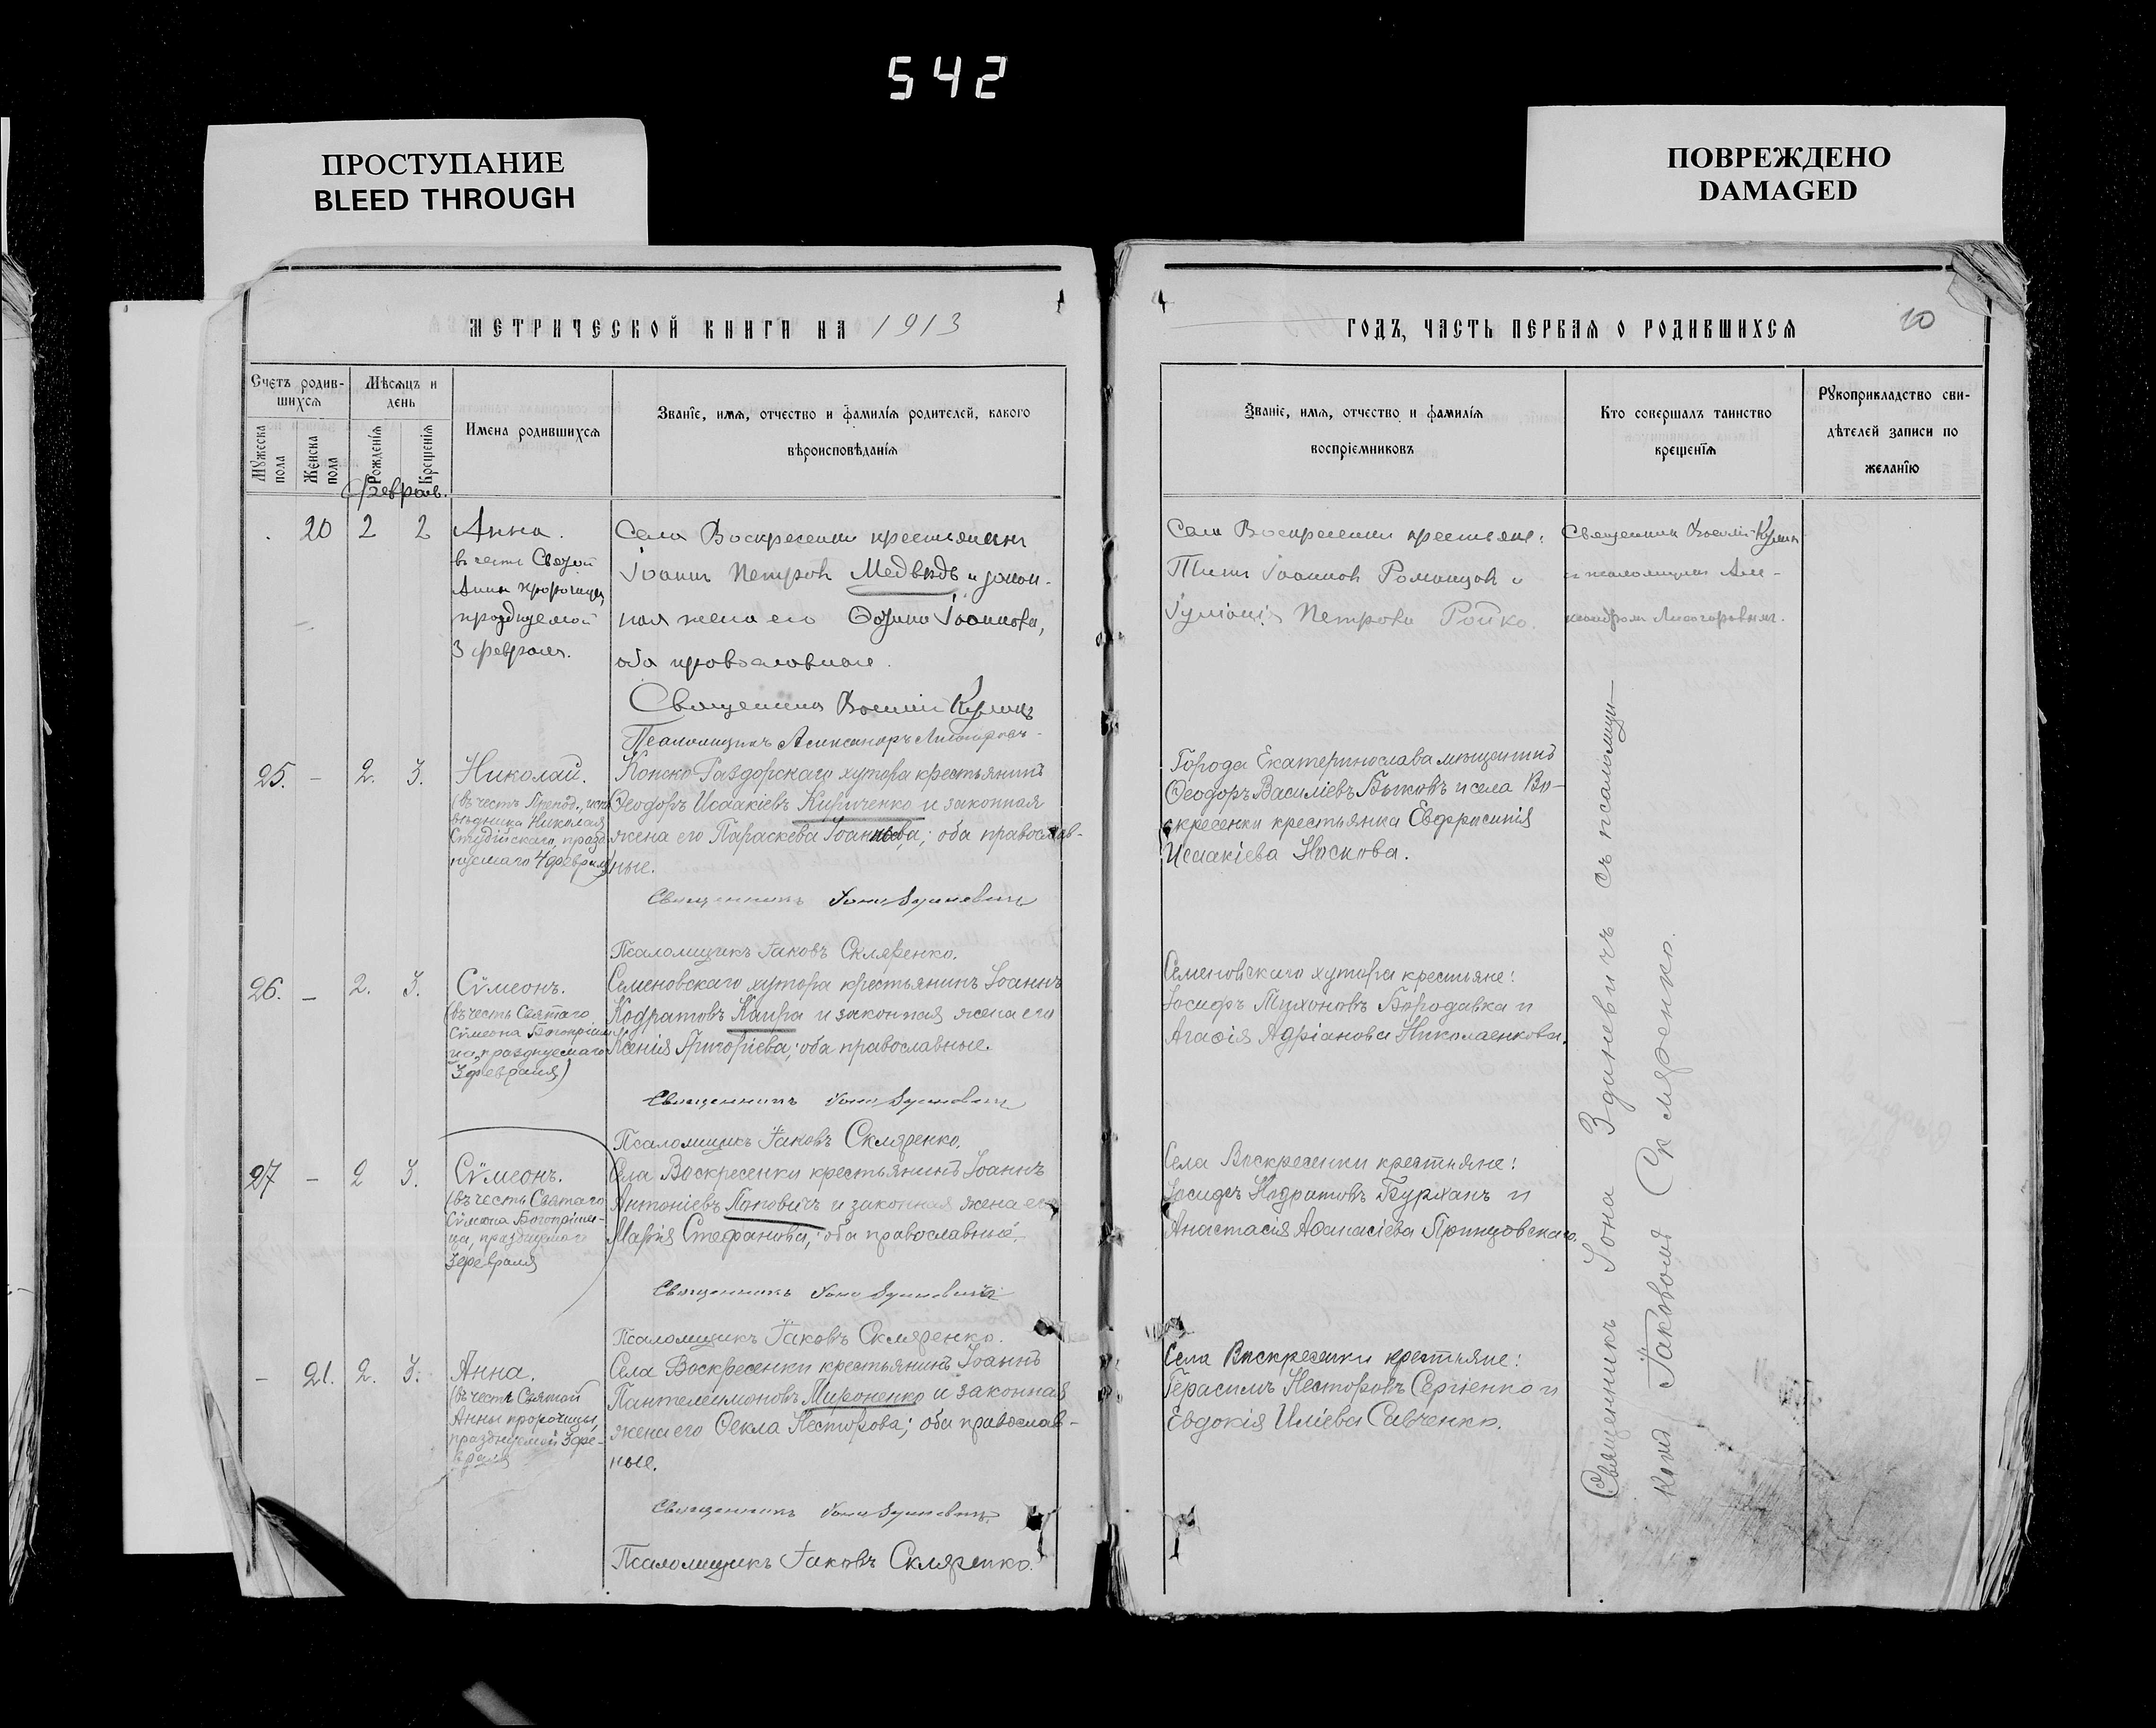 542
ПРОСТУПАНИЕ
BLEED THROUGH
ПОВРЕЖДЕНО
DAMAGED
МЕТРИЧЕСКОЙ КНИГИ НА 1913
Счетъ родив-
шихся
Мѣсяцъ и
день
Мужеска
пола
Женска
пола
Рожденія
Крещенія
Имена родившихся
Званіе, имя, отчество и фамилія родителей, какого
вѣроисповѣданія
Февраль.
20 2 2 Анна.
въ честь Святой
Анны пророчицы
празднуемой
3 февраля.
Села Воскресенки крестьянинъ
Іоаннъ Петровъ Медвѣдь и закон-
ная жена его Іоаннова,
оба православные.
Священникъ
Псаломщикъ Александръ
25. – 2. 3. Николай.
(въ честь Препод., испо
вѣдника Николая
Студійскаго, празд
нуемаго 4 февраля)
Конско-Раздорскаго хутора крестьянинъ
Ѳеодоръ Исаакіевъ Кириченко и законная
жена его Параскева Іоаннова; оба православ-
ные.
Священникъ Іона Здиневичъ
Псаломщикъ Іаковъ Скляренко.
26. – 2. 3. Сѵмеонъ.
(въ честь Святаго
Сѵмеона Богопріим
ца, празднуемаго
3 февраля)
Семеновскаго хутора крестьянинъ Іоаннъ
Кодратовъ Каира и законная жена его
Ксенія Григоріева; оба православные.
Священникъ Іона Здиневичъ
Псаломщикъ Іаковъ Скляренко.
27 – 2 3. Сѵмеонъ.
(въ честь Святаго
Сѵмеона Богопріим-
ца, празднуемаго
3 февраля
Села Воскресенки крестьянинъ Іоаннъ
Антоніевъ Поповичъ и законная жена его
Марія Стефанова; оба православные.
Священникъ Іона Здиневичъ
Псаломщикъ Іаковъ Скляренко.
– 21. 2. 3. Анна.
(въ честь Святой
Анны пророчицы,
празднуемой 3 фе-
враля
Села Воскресенки крестьянинъ Іоаннъ
Пантелеимоновъ Мироненко и законная
жена его Ѳекла Несторова; оба православ-
ные.
Священникъ Іона Здиневичъ
Псаломщикъ Іаковъ Скляренко.
ГОДЪ, ЧАСТЬ ПЕРВАЯ О РОДИВШИХСЯ
10
Званіе, имя, отчество и фамилія
воспріемниковъ
Кто совершалъ таинство
крещенія
Рукоприкладство сви-
дѣтелей записи по
желанію
Села Воскресенки крестьяне:
Титъ Іоанновъ Романцовъ и
Іуліанія Петрова Бойко.
Священникъ
съ псаломщикомъ Але-
ксандромъ
Города Екатеринослава мѣщанинъ
Ѳеодоръ Василіевъ Бычковъ и села Во-
скресенки крестьянка Евфросинія
Исаакіева Носкова.
Семеновскаго хутора крестьяне:
Іосифъ Тихоновъ Бородавка и
Агаѳія Адріанова Николаенкова.
Села Воскресенки крестьяне:
Іосифъ Кодратовъ Бурханъ и
Анастасія Аѳанасіева
Села Воскресенки крестьяне:
Герасимъ Несторовъ Сергіенко и
Евдокія Иліева Савченко.
Священникъ Іона Здиневичъ съ псаломщи-
комъ Іаковомъ Скляренко.